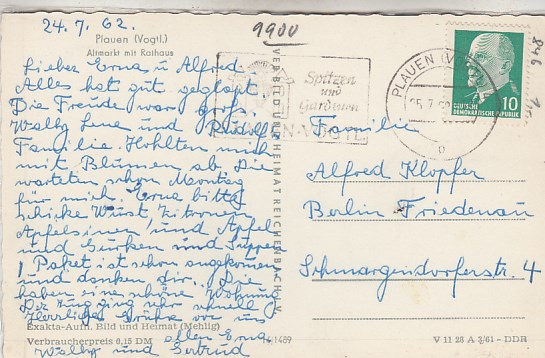 24.7.62.
9900
Plauen (Vogtl.)
Altmarkt mit Rathaus
Lieber Erna u Alfred
Alles hat gut geglapt
Die Freude war groß.
Wally Lene und Rudolf
Familie. Hohlten mich
mit Blumen ab. Die
warteten schon Montag
für mich. Erna bitte
schicke Wurst Zitronen
Apfelsinen und Apfel
und Gurken und Suppen
1 Paket ist schon angekommen
und danken dir. Die
haben eine schöne Wohnung
Der Zug ging sehr schnell
Herzliche Grüße von uns
allen Erna
Wally und Gertrud
Exakta-Aufn. Bild und Heimat (Mehlig)
Verbraucherpreis 0,15 DM
14/1489
VERBILD UND HEIMAT REICHENBACH I. V.
Spitzen
und
Gardinen
PLAUEN (VOGTL
25.7.62
DEUTSCHE
DEMOKRATISCHE REPUBLIK
10
846
Familie
Alfred Klopfer
Berlin Friedenau
Schmargendorferstr. 4
V 11 28 A 3/61 - DDR